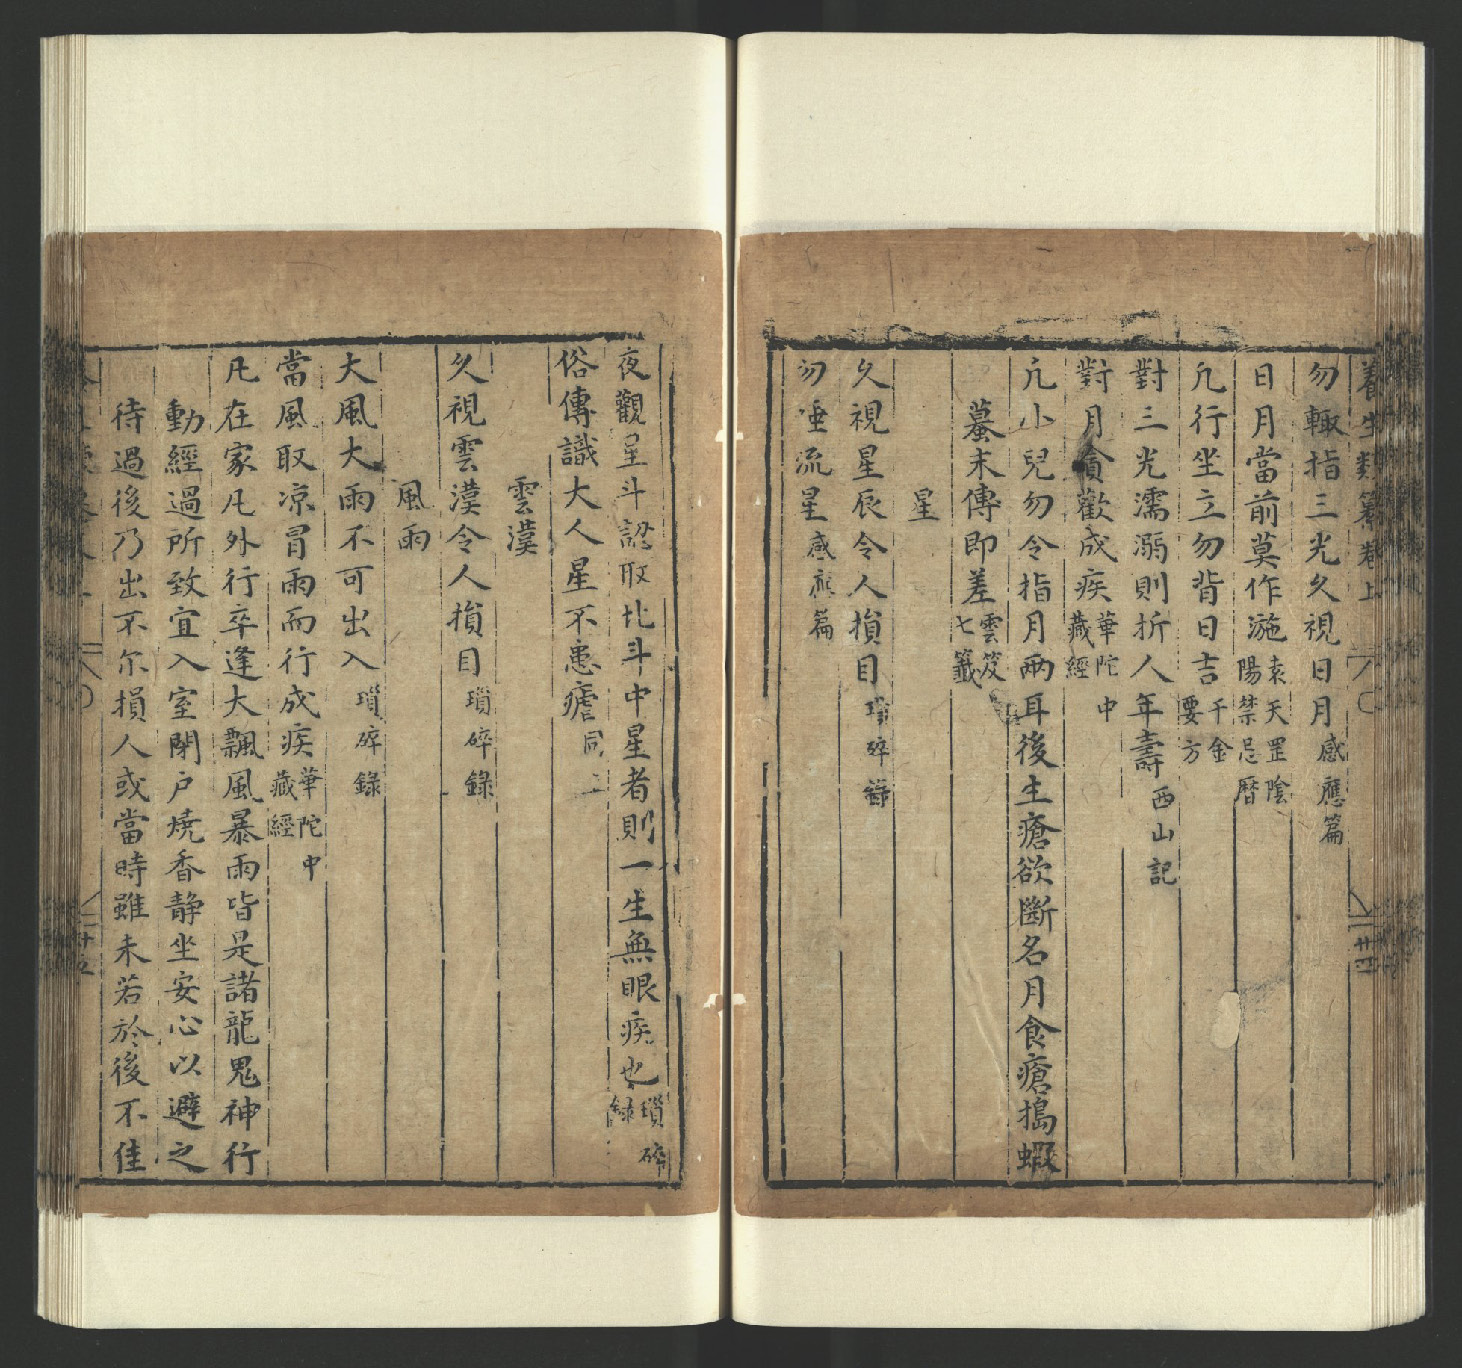 養生類纂卷上
勿輙指三光久視日月感應篇
日月當前莫作㳺袁天罡陰陽禁忌曆
凢行坐立勿背日吉千金要方
對三光濡溺則折人年壽西山記
對月貪歡成疾華陀中藏經
凢小兒勿令指月兩耳後生瘡欲斷名月食瘡搗蝦
蟇末傅即差雲笈七籤
星
久視星辰令人損目瑣碎錄
勿唾流星感應篇
夜觀星斗認取北斗中星者則一生無眼疾也瑣碎録
俗傳識大人星不患瘧同上
雲漢
久視雲漢令人損目瑣碎錄
風雨
大風大雨不可出入瑣碎錄
當風取凉冒雨而行成疾華陀中藏經
凢在家凢外行卒逢大飄風暴雨皆是諸龍鬼神行
動經過所致宜入室閉户燒香静坐安心以避之
待過後乃出不尔損人或當時雖未若於後不佳